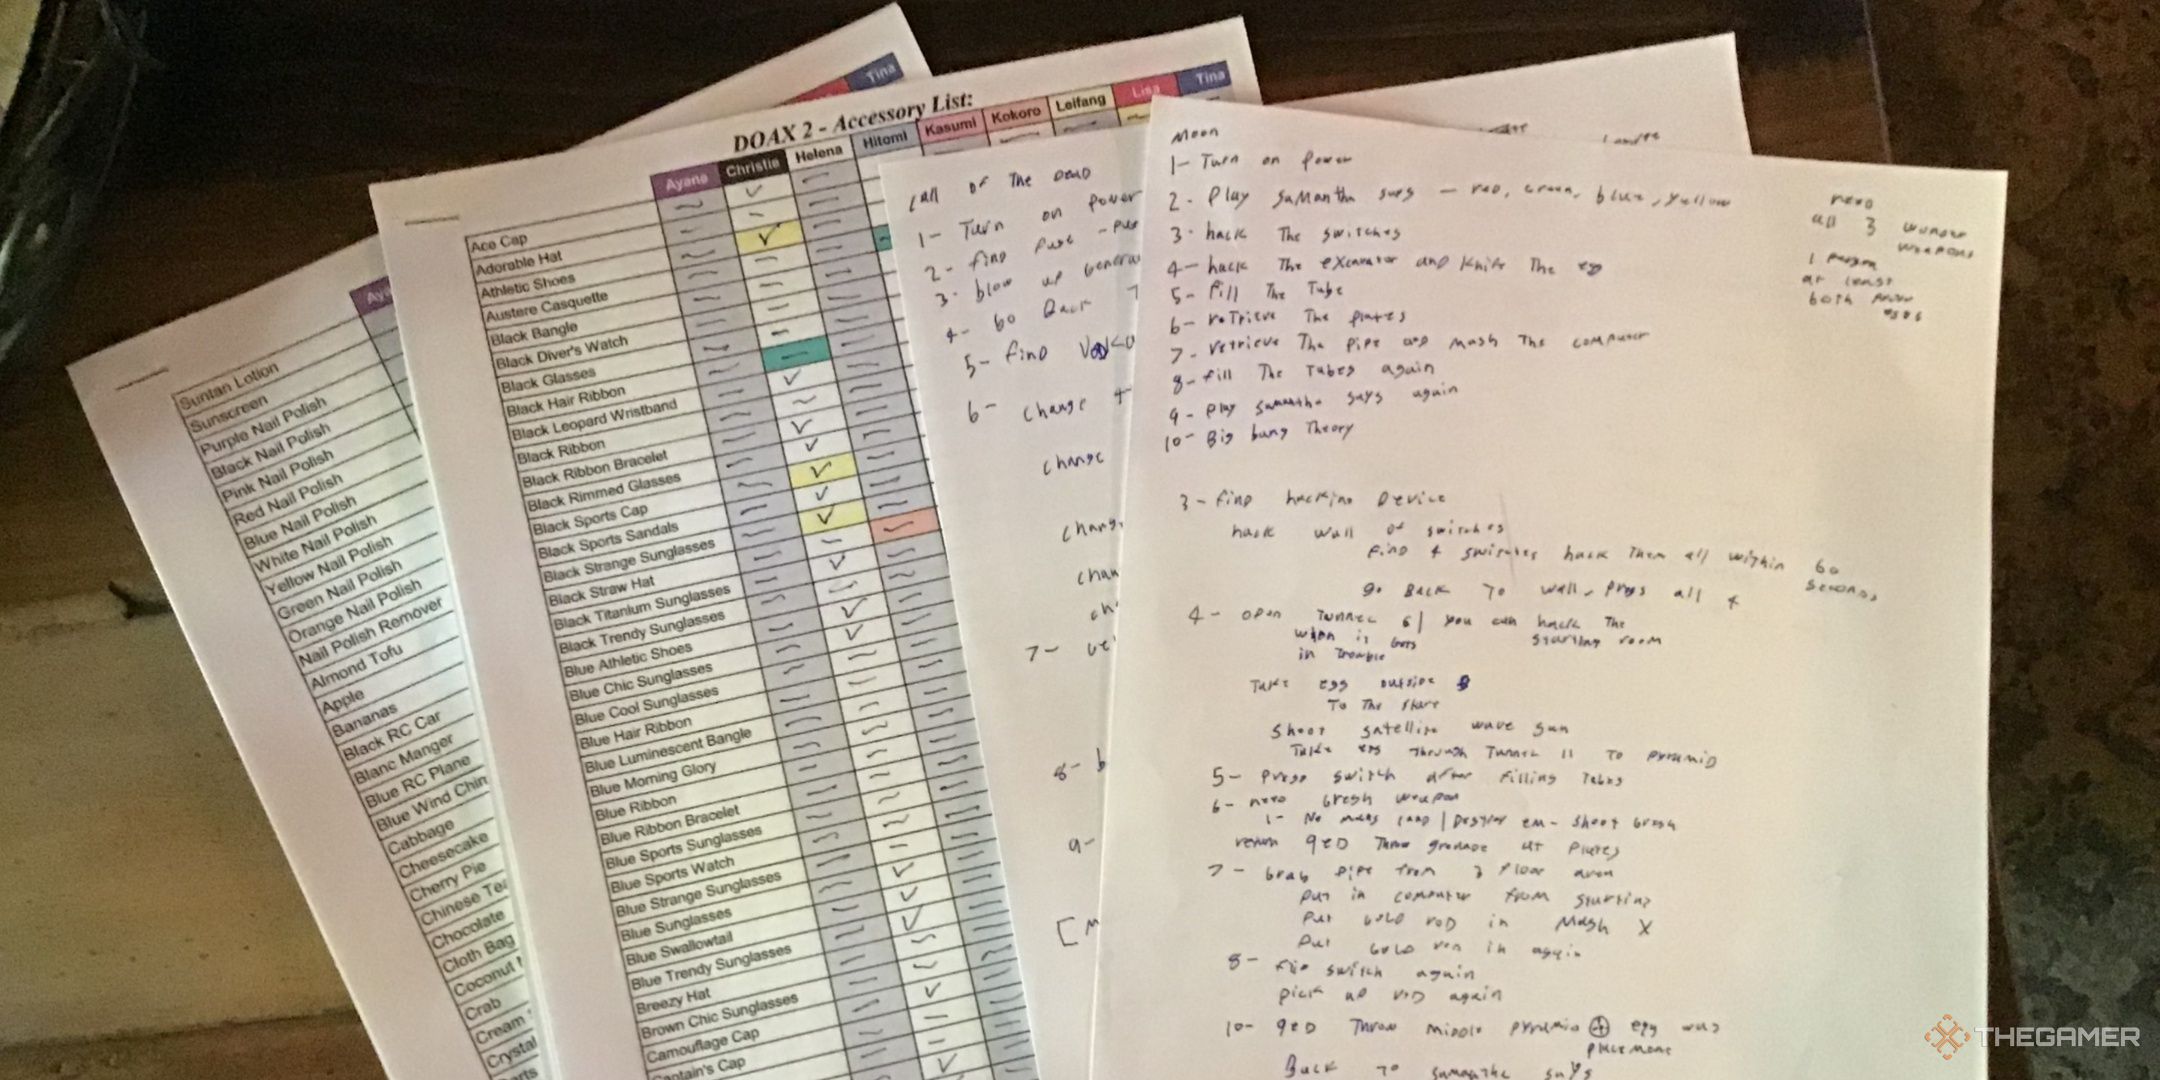 Tina
DOAX 2 - Accessory List:
Ayane Christie Helena Hitomi Kasumi Kokoro Leifang Lisa Tina
Ace Cap
Adorable Hat
Athletic Shoes
Austere Casquette
Black Bangle
Black Diver's Watch
Black Glasses
Black Hair Ribbon
Black Leopard Wristband
Black Ribbon
Black Ribbon Bracelet
Black Rimmed Glasses
Black Sports Cap
Black Sports Sandals
Black Strange Sunglasses
Black Straw Hat
Black Titanium Sunglasses
Black Trendy Sunglasses
Blue Athletic Shoes
Blue Chic Sunglasses
Blue Cool Sunglasses
Blue Hair Ribbon
Blue Luminescent Bangle
Blue Morning Glory
Blue Ribbon
Blue Ribbon Bracelet
Blue Sports Sunglasses
Blue Sports Watch
Blue Strange Sunglasses
Blue Sunglasses
Blue Swallowtail
Blue Trendy Sunglasses
Breezy Hat
Brown Chic Sunglasses
Camouflage Cap
Captain's Cap
Ay
Suntan Lotion
Sunscreen
Purple Nail Polish
Black Nail Polish
Pink Nail Polish
Red Nail Polish
Blue Nail Polish
White Nail Polish
Yellow Nail Polish
Green Nail Polish
Orange Nail Polish
Nail Polish Remover
Almond Tofu
Apple
Bananas
Black RC Car
Blanc Manger
Blue RC Plane
Blue Wind Chin
Cabbage
Cheesecake
Cherry Pie
Chinese Tea
Chocolate
Cloth Bag
Coconut
Crab
Cream
Crystal
arts
Call of The Dead
1- Turn on power
2- find fuse -
3- blow up genera
4- Go Back T
5- find
6- change
change
chang
chan
ch
7-
8- b
9-
[M
Moon
1- Turn on power
2- Play samantha says - red, green, blue, yellow
3- hack The switches
4- hack The excavator and knife The egg
5- fill The Tube
6- retrieve The plates
7- retrieve The pipe and mash The computer
8- fill The Tubes again
9- play samantha says again
10- Big bang Theory
need
all 3 wonder
weapons
1 person
at least
both
3- find hacking Device
hack wall of switches
find 4 switches hack Them all within 60
seconds
go Back To wall, press all 4
4- open Tunnel 6 / you can hack The
when it gets starting room
in Trouble
Take egg outside
To The
shoot satellite wave gun
Take egg Through Tunnel 11 To pyramid
5- press switch after filling Tubes
6- need Gresh weapon
1- No mans land / Destroy em - shoot Gresh
QED Throw grenade at plates
7- Grab pipe from 3 floor area
put in computer from starting
put Gold rod in Mash X
put Gold rod in again
8- flip switch again
pick up rod again
10- QED Throw middle pyramid egg was
Back To samantha says
THEGAMER